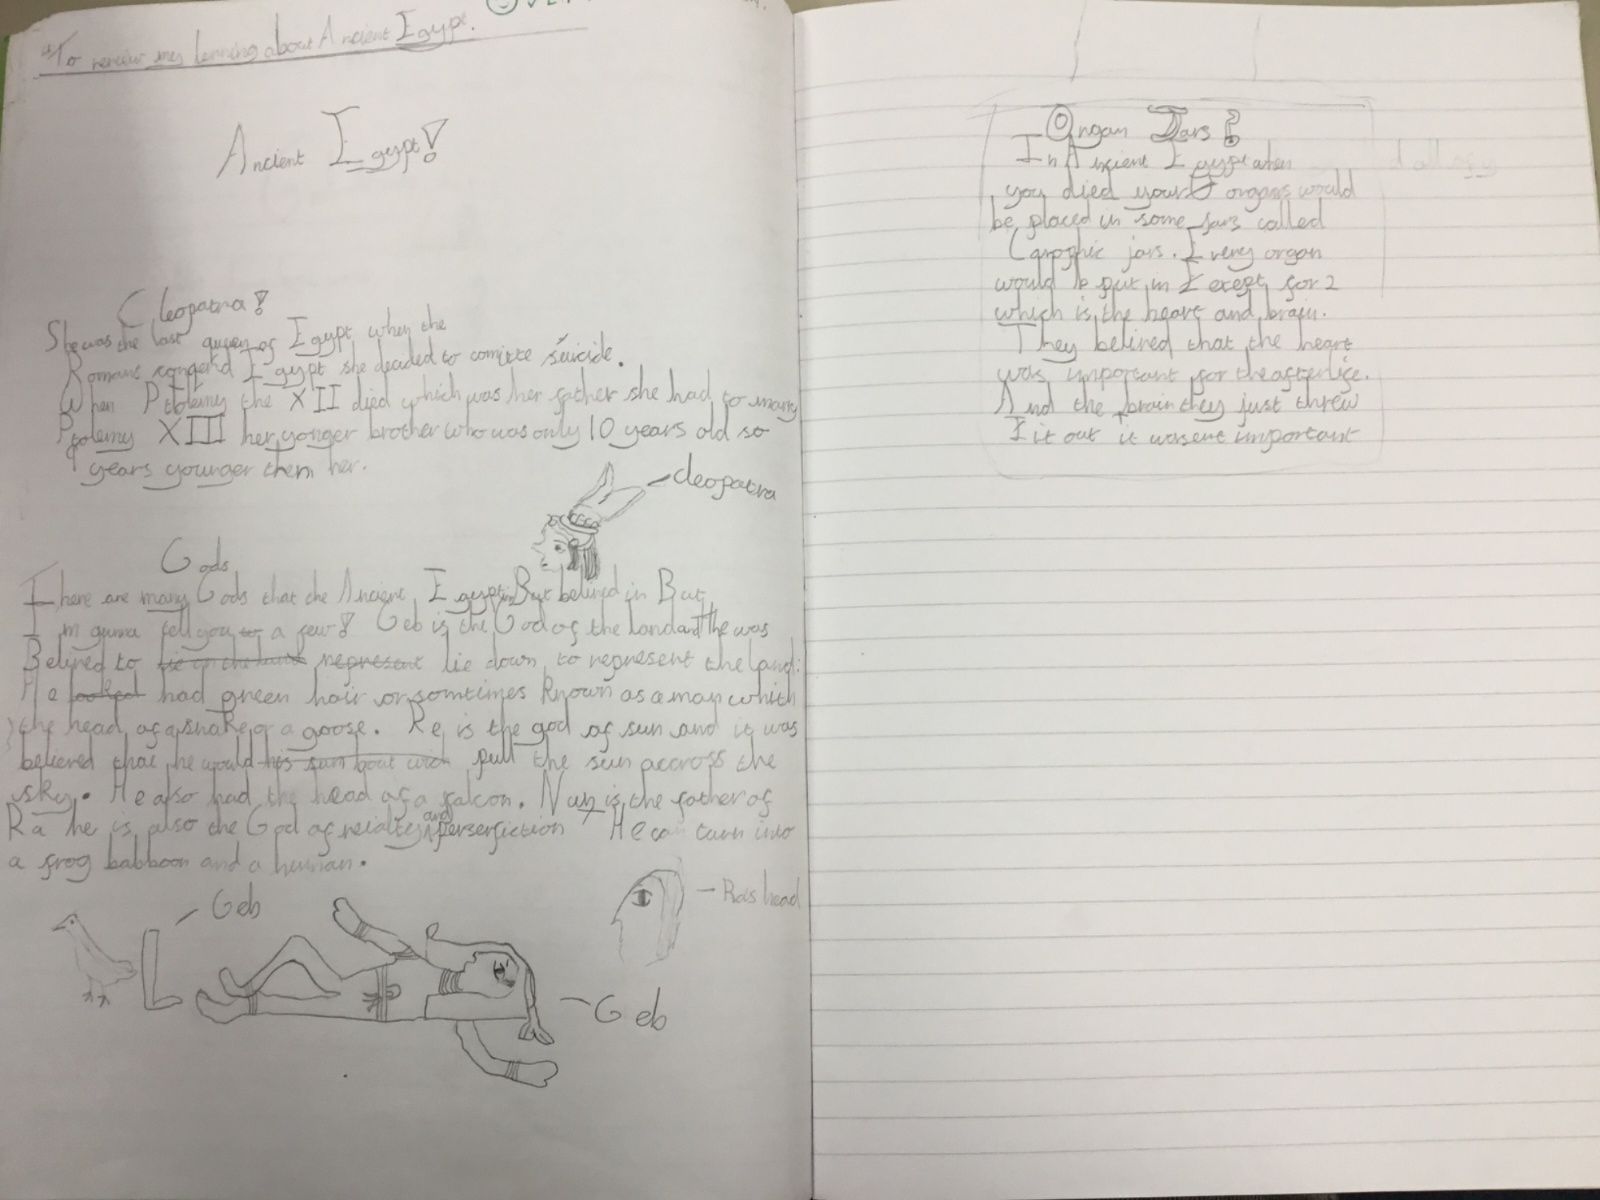 To review my lerning about Ancient Egypt.
Ancient Egypt!
Cleopatra!
She was the last queen of Egypt when the
Romans Egypt she decided to comitte suicide.
When Ptolemy the XII died which was her father she had to marry
Ptolemy XIII her yonger brother who was only 10 years old so
years younger them her.
cleopatra
Gods
There are many Gods that the Ancient But belived in But
I'm gunna tell you to a few! Geb is the God of the land and he was
Belived to lie on the land represent lie down to represent the land.
He looked had green hair or somtimes known as a man which
the head of a snake or a goose. Re is the god of sun and it was
believed that he would his sun boat wich pull the sun accross the
sky. He also had the head of a falcon. Nun is the father of
Ra he is also the God of and He can turn into
a frog babboon and a human.
Geb
Ra's head
Geb
Organ Jars!
In Ancient Egypt when
you died your organs would
be placed in some jars called
jars. Every organ
would be put in Exept for 2
which is the heart and brain.
They belived that the heart
was important for the afterlife.
And the brain they just threw
it out it wasent important